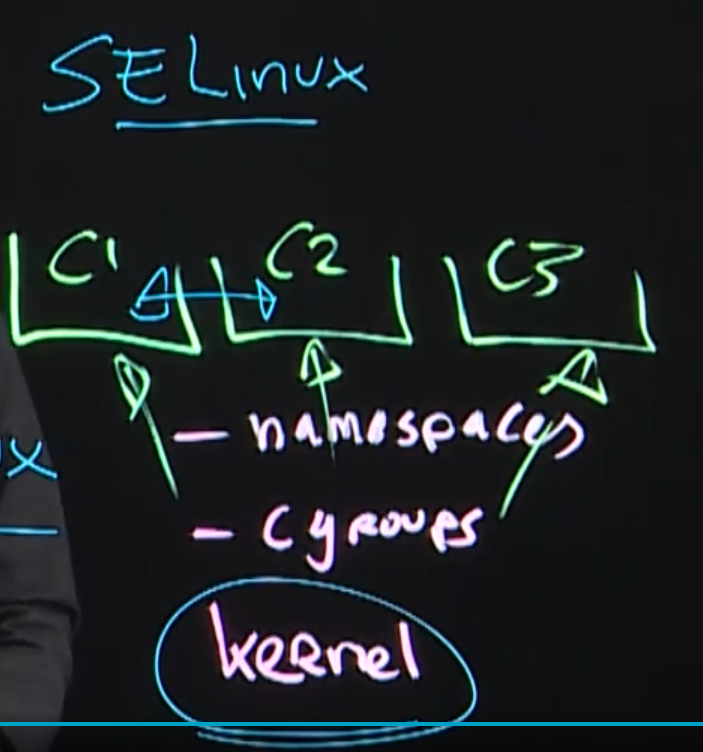 SELinux
C1 C2 C3
- namespaces
- cgroups
ux
kernel